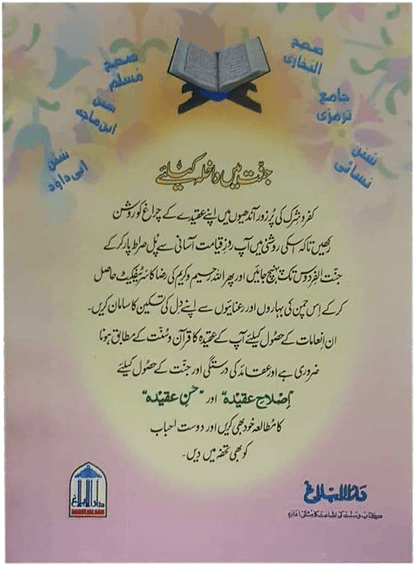 صحیح
البخاری
صحیح
مسلم
جامع
ترمذی
سنن
ابن ماجہ
سنن
نسائی
سنن
ابی داؤد
جنت میں داخلہ کیلئے
کفر و شرک کی پُر زور آندھیوں میں اپنے عقیدے کے چراغ کو روشن
رکھیں تاکہ اسکی روشنی میں آپ روزِ قیامت آسانی سے پل صراط پار کر کے
جنت الفردوس تک پہنچ جائیں اور پھر اللہ رحیم و کریم کی رضا کا سرٹیفکیٹ حاصل
کر کے اس چمن کی بہاروں اور رعنائیوں سے اپنے دل کی تسکین کا سامان کریں۔
ان انعامات کے حصول کیلئے آپ کے عقیدہ کا قرآن و سنت کے مطابق ہونا
ضروری ہے اور عقائد کی درستگی اور جنت کے حصول کیلئے
"اصلاحِ عقیدہ" اور "حسنِ عقیدہ"
کا مطالعہ خود بھی کریں اور دوست احباب
کو بھی تحفہ میں دیں۔
دارالبلاغ
کتاب و سنت کی اشاعت کا مثالی ادارہ
دارالبلاغ
DARUL BLAGH